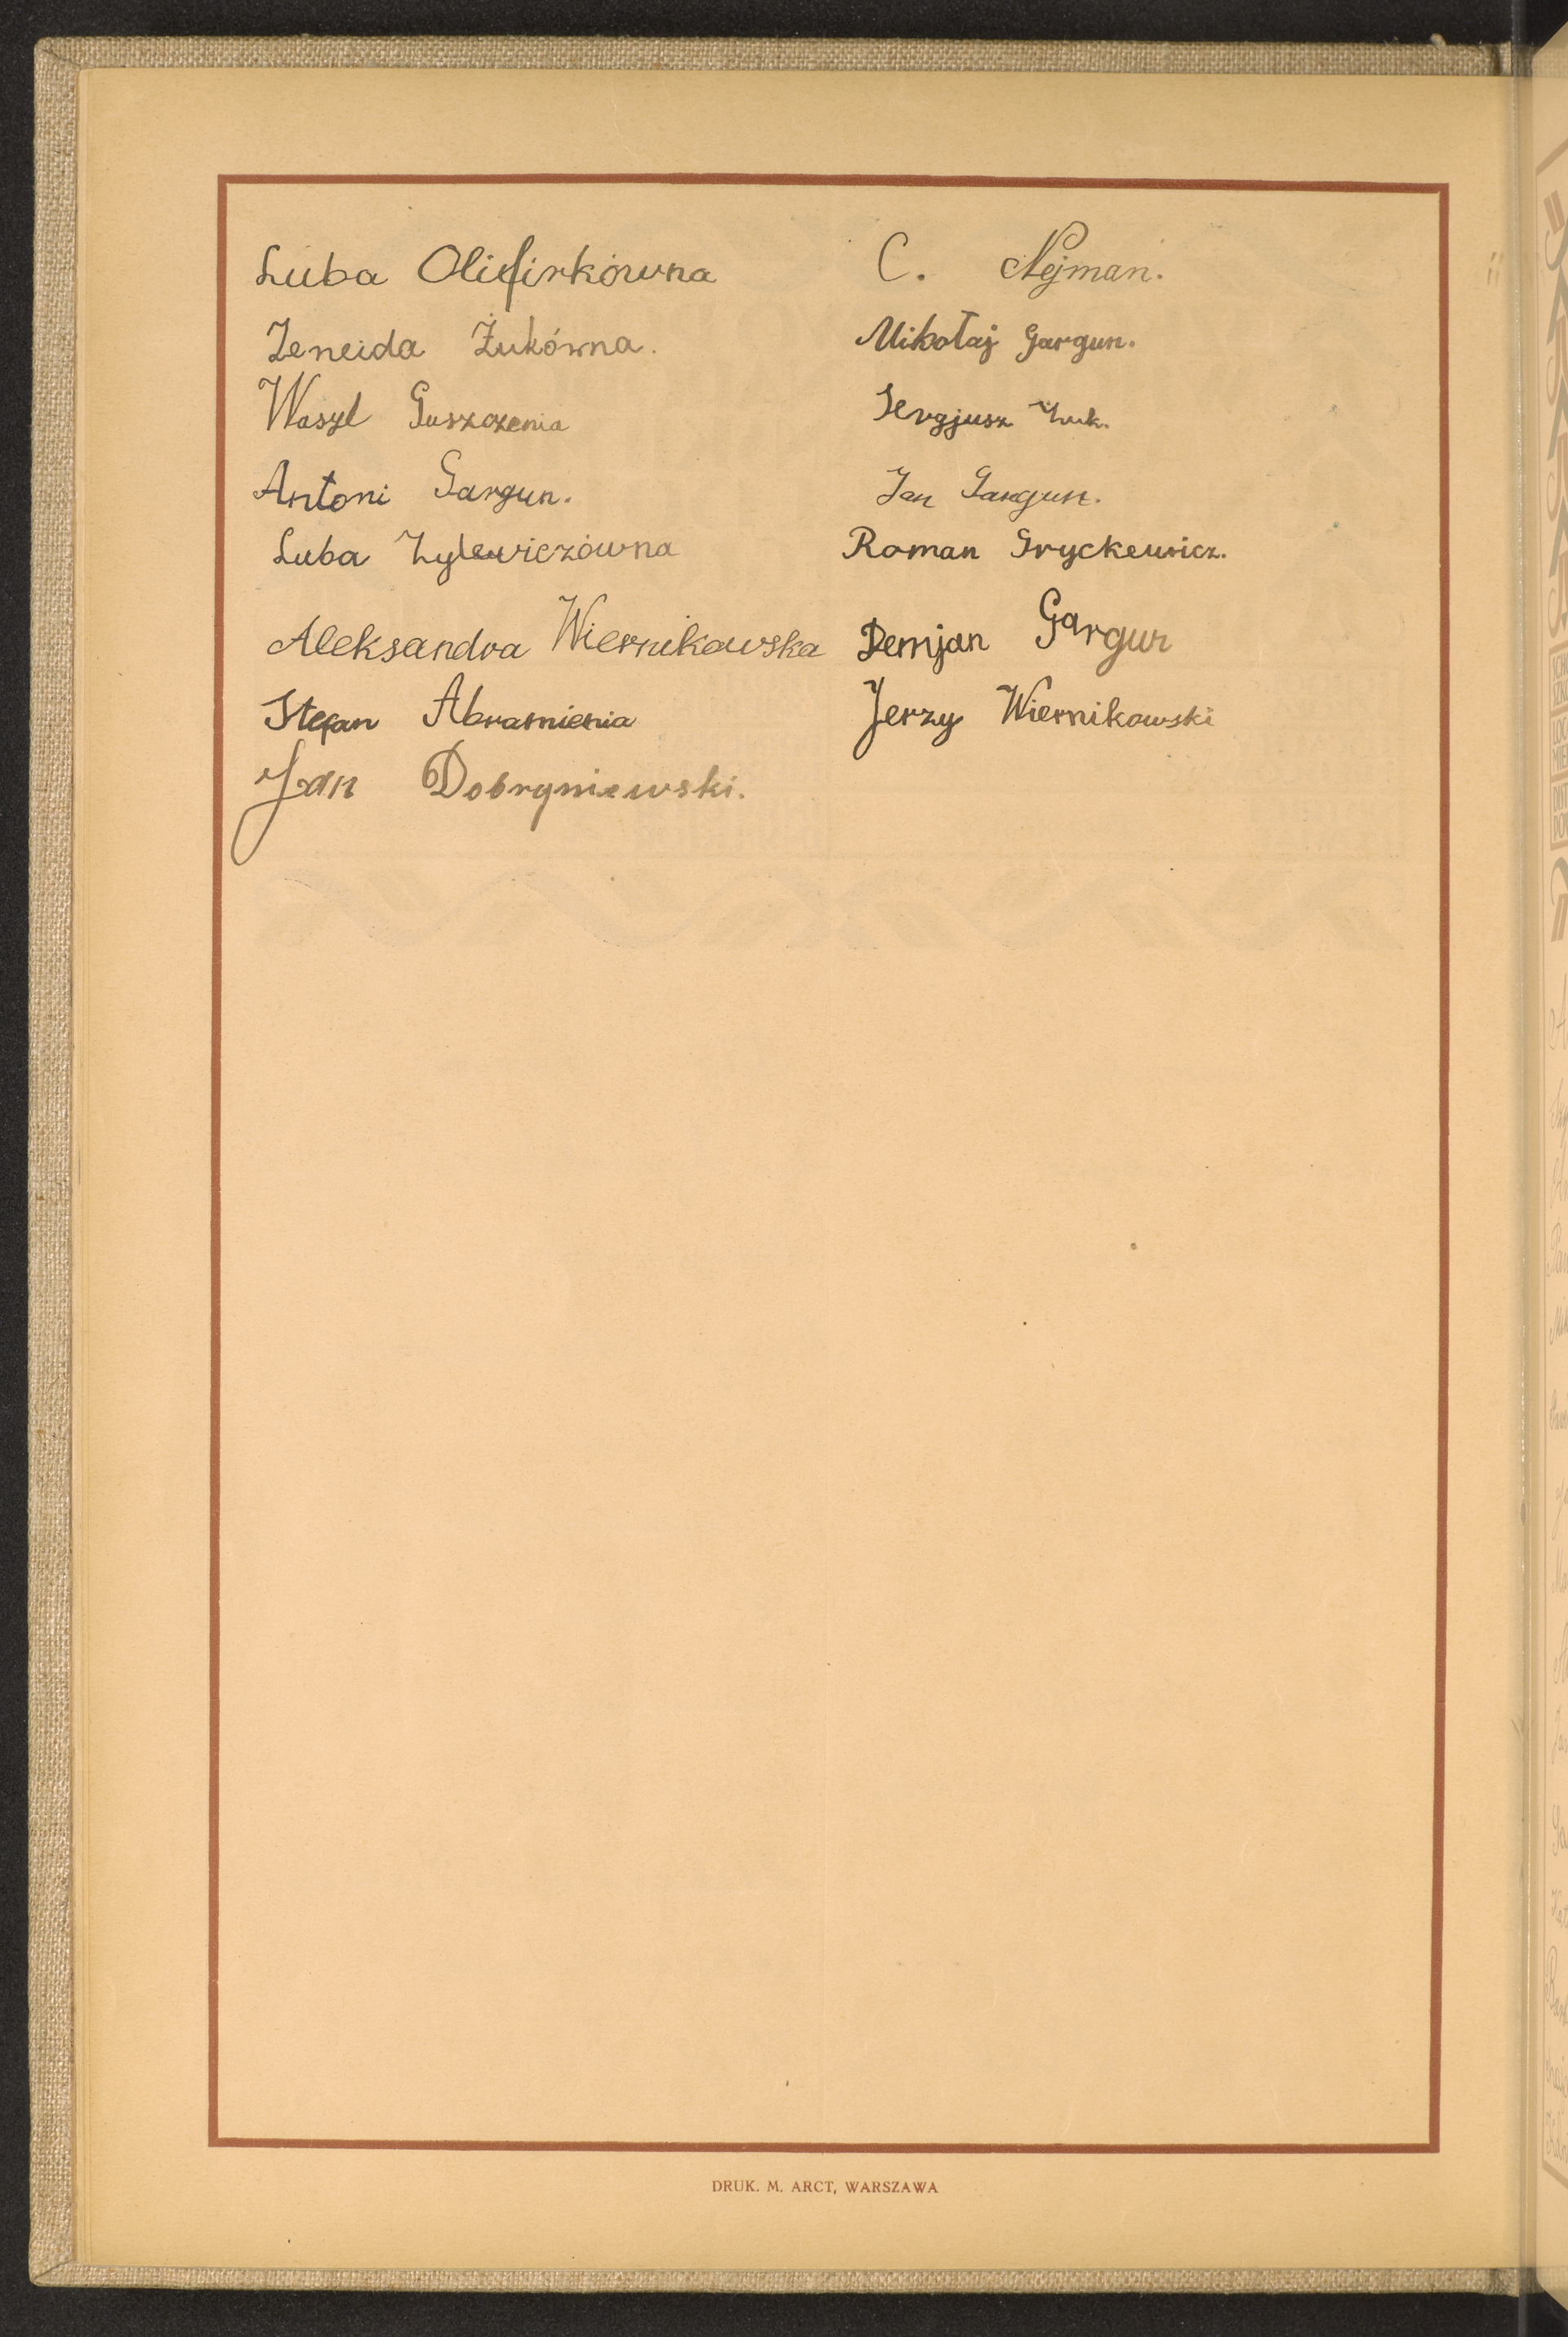 Luba Olifirkówna
Zeneida Żukówna.
Wasyl Guszczenia
Antoni Gargun.
Luba Żylewiczówna
Aleksandra Wiernikowska
Stefan Abramienia
Jan Dobryniewski.
C. Nejman.
Mikołaj Gargun.
Sergjusz Żuk.
Jan Gargun.
Roman Gryckewicz.
Demjan Gargun
Jerzy Wiernikowski
DRUK. M. ARCT, WARSZAWA